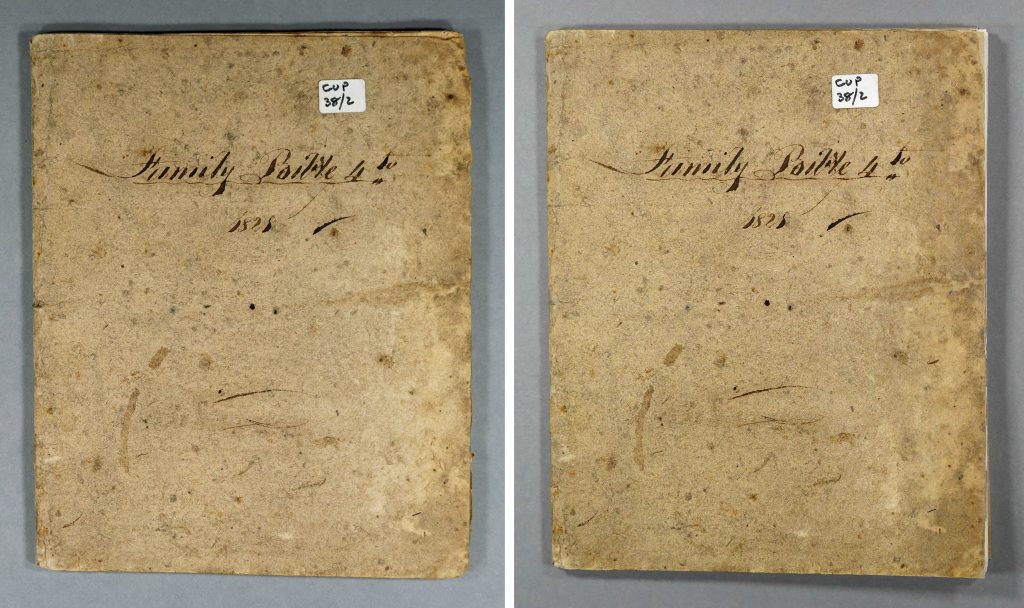 CUP
38/2
Family Bible 4to
1828
CUP
38/2
Family Bible 4to
1828